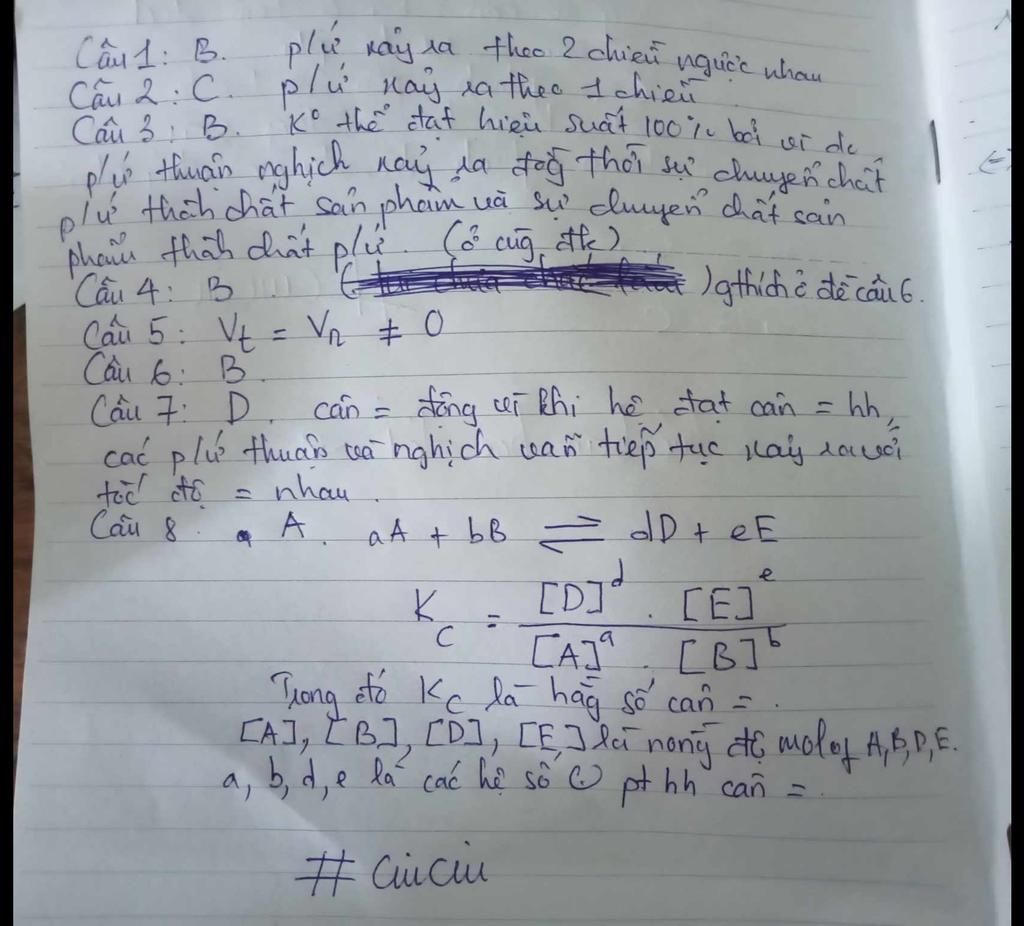 Câu 1: B. p/ứ xảy ra theo 2 chiều ngược nhau
Câu 2: C. p/ứ xảy ra theo 1 chiều
Câu 3: B. K° thể đạt hiệu suất 100% bởi vì đc
p/ứ thuận nghịch xảy ra đồg thời sự chuyển chất
p/ứ thàh chất sản phẩm và sự chuyển chất sản
phẩm thàh chất p/ứ. (ở cùg đk)
Câu 4: B ( ) gthích ở đề câu 6.
Câu 5: Vt = Vn ≠ 0
Câu 6: B.
Câu 7: D. cân = động vì khi hệ đạt cân = hh,
các p/ứ thuận và nghịch vẫn tiếp tục xảy ra với
tốc độ = nhau.
Câu 8. A. aA + bB ⇌ dD + eE
K_C = [D]^d . [E]^e / [A]^a . [B]^b
Trong đó K_C là hằg số cân =.
[A], [B], [D], [E] là nồng độ mol of A,B,D,E.
a, b, d, e là các hệ số pt hh cân =.
# CiuCiu